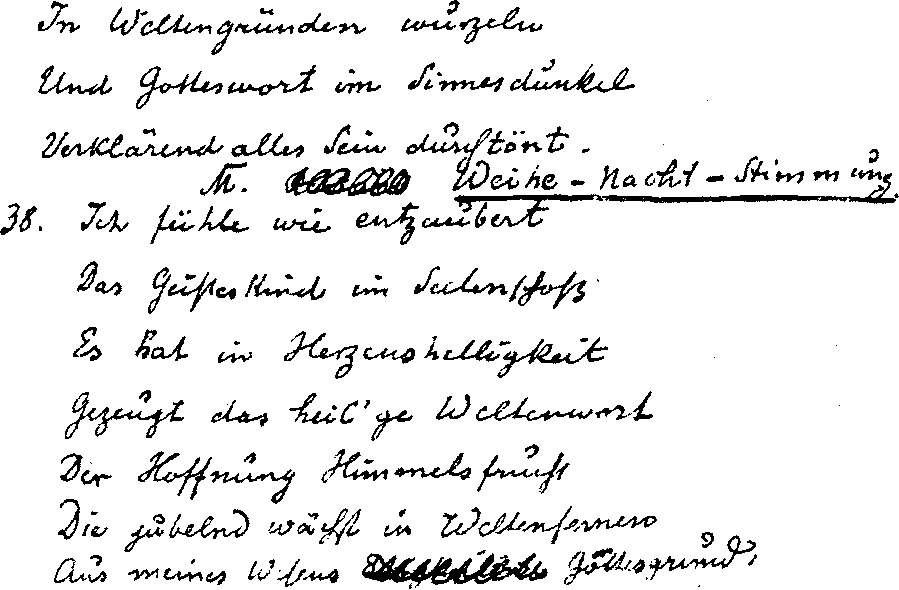 In Weltengründen wurzeln
Und Gotteswort im Sinnesdunkel
Verklärend alles Sein durchtönt.
M. Weihe-Nacht-Stimmung.
38. Ich fühle wie entzaubert
Das Geisteskind im Seelenschoß
Es hat in Herzenshelligkeit
Gezeugt das heil'ge Weltenwort
Der Hoffnung Himmelsfrucht
Die jubelnd wächst in Weltenfernen
Aus meines Wesens Gottesgrund.